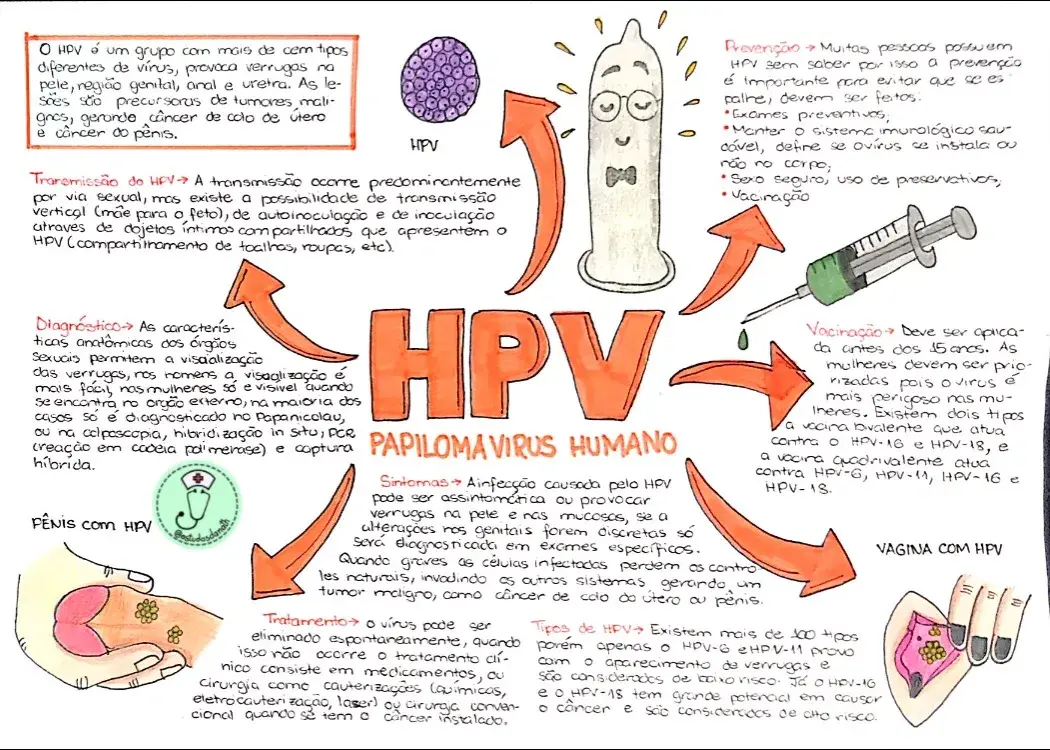 O HPV é um grupo com mais de cem tipos
diferentes de vírus, provoca verrugas na
pele, região genital, anal e uretra. As le-
sões são precursoras de tumores mali-
gnos, gerando câncer de colo de útero
e câncer do pênis.
HPV
Prevenção → Muitas pessoas possuem
HPV sem saber por isso a prevenção
é importante para evitar que se es-
palhe, devem ser feitos:
• Exames preventivos;
• Manter o sistema imunológico sau-
dável, define se o vírus se instala ou
não no corpo;
• Sexo seguro, uso de preservativos;
• Vacinação
Transmissão do HPV → A transmissão ocorre predominantemente
por via sexual, mas existe a possibilidade de transmissão
vertical (mãe para o feto), de autoinoculação e de inoculação
através de objetos íntimos compartilhados que apresentem o
HPV (compartilhamento de toalhas, roupas, etc).
Diagnóstico → As caracterís-
ticas anatômicas dos órgãos
sexuais permitem a visualização
das verrugas, nos homens a visualização é
mais fácil, nas mulheres só é visível quando
se encontra no orgão externo, na maioria dos
casos só é diagnosticado no Papanicolau,
ou na colposcopia, hibridização in situ, PCR
(reação em cadeia polimerase) e captura
híbrida.
HPV
PAPILOMAVIRUS HUMANO
Vacinação → Deve ser aplica-
da antes dos 15 anos. As
mulheres devem ser prio-
rizadas pois o vírus é
mais perigoso nas mu-
lheres. Existem dois tipos
a vacina bivalente que atua
contra o HPV-16 e HPV-18, e
a vacina quadrivalente atua
contra HPV-6, HPV-11, HPV-16 e
HPV-18.
Sintomas → A infecção causada pelo HPV
pode ser assintomática ou provocar
verrugas na pele e nas mucosas, se a
alterações nos genitais forem discretas só
será diagnosticada em exames específicos.
Quando graves as células infectadas perdem os contro-
les naturais, invadindo os outros sistemas gerando um
tumor maligno, como câncer de colo do útero ou pênis.
@estudosdanath
PÊNIS COM HPV
VAGINA COM HPV
Tratamento → o vírus pode ser
eliminado espontaneamente, quando
isso não ocorre o tratamento clí-
nico consiste em medicamentos, ou
cirurgia como cauterizações (químicas,
eletrocauterização, laser) ou cirurgia conven-
cional quando se tem o câncer instalado.
Tipos de HPV → Existem mais de 100 tipos
porém apenas o HPV-6 e HPV-11 provo
com o aparecimento de verrugas e
são considerados de baixo risco. Já o HPV-16
e o HPV-18 tem grande potencial em causar
o câncer e são considerados de alto risco.